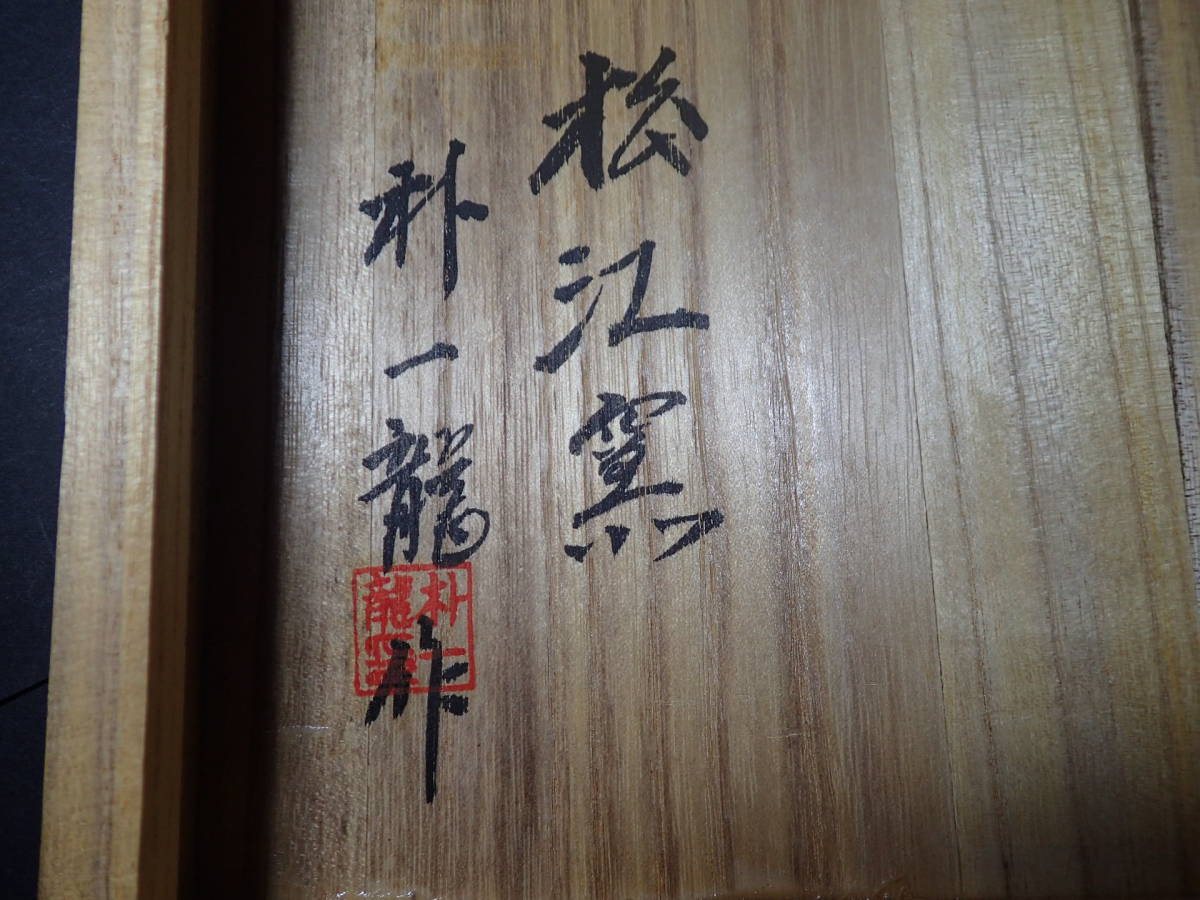 松江窯
朴一龍作
朴一
龍